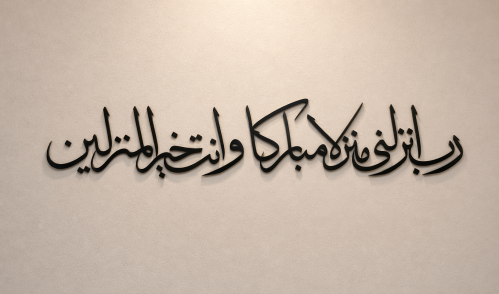 رب انزلنی منزلا مبارکا وانت خیر المنزلین